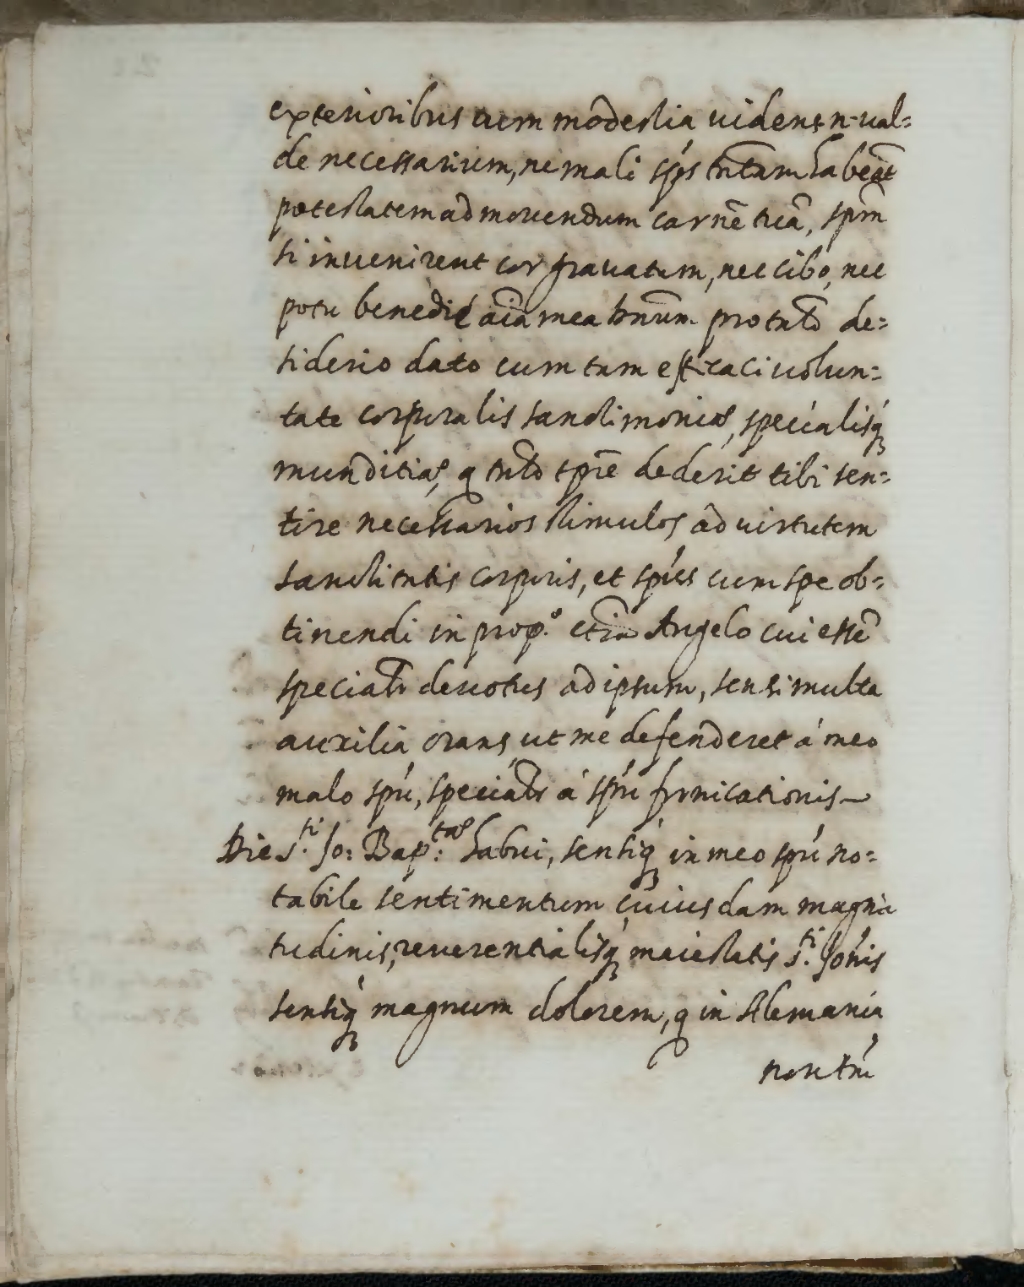 exterioribus cum modestia videns n. val=
de necessarium, ne mali spūs tantam habeāt
potestatem ad movendum carnē tuā, spūm
si invenirent cor gravatum, nec cibo, nec
potu benedic aīa mea Dnūm pro tāto de=
siderio dato cum tam efficaci volun=
tate corporalis sanctimoniae, specialisq́
munditiae, q tāto tpre dederit tibi sen=
tire necessarios stimulos ad virtutem
sanctitatis corporis, et spūs cum spe ob=
tinendi in prop.º etiā Angelo cui essē
specialr̄ devotus ad ipsum, sensi multa
auxilia orans, ut me defenderet á meo
malo spū, specialr̄ á spū fornicationis
Die S.ti Jo: Bap.tae habui, sensiq́ in meo spū no=
tabile sentimentum cuiusdam magni
tudinis, reverentialisq́ maiestatis S.ti Joānis
sensiq́ magnum dolorem, q in Alemania
non tm̄